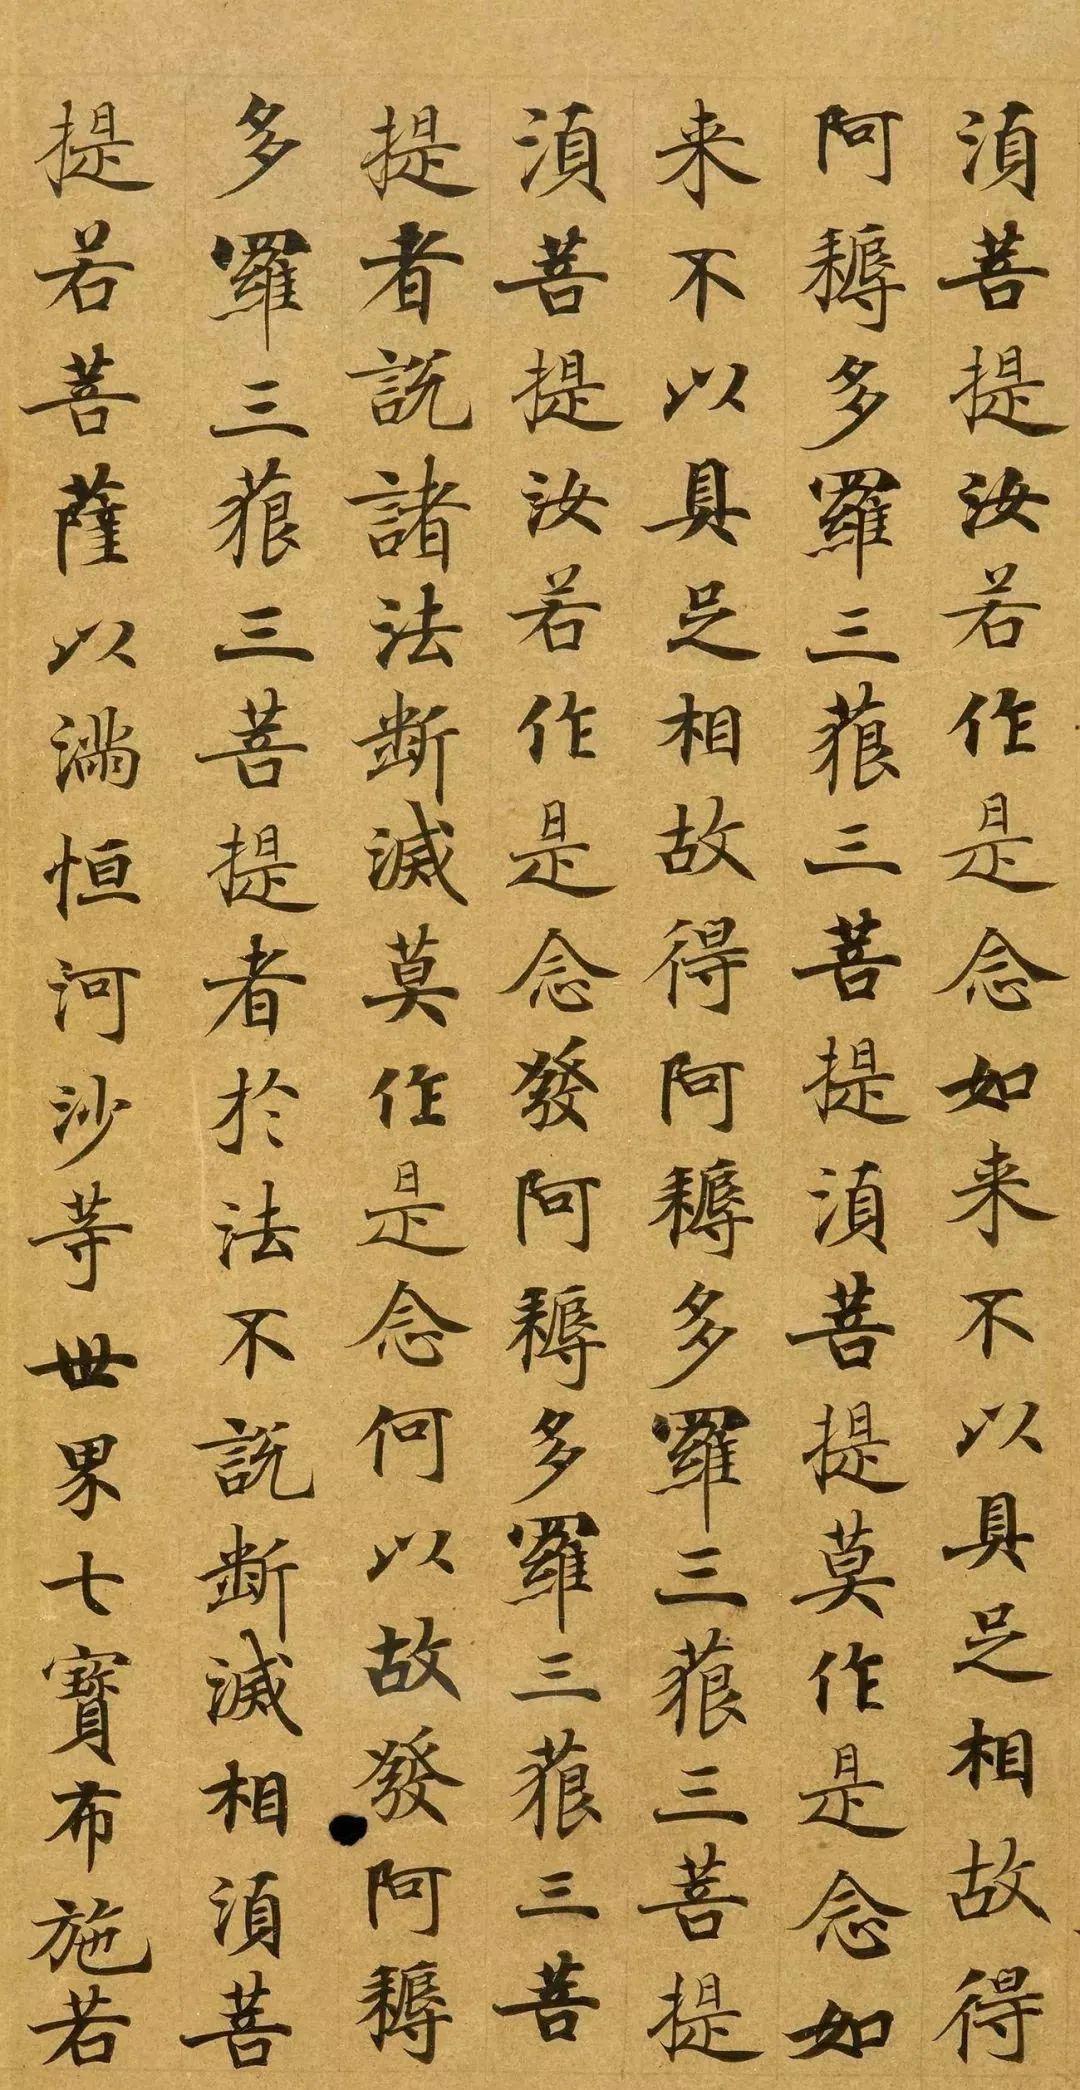 湏菩提汝若作是念如来不以具足相故得
阿耨多羅三藐三菩提湏菩提莫作是念如
来不以具足相故得阿耨多羅三藐三菩提
湏菩提汝若作是念發阿耨多羅三藐三菩
提者說諸法斷滅莫作是念何以故發阿耨
多羅三藐三菩提者於法不說斷滅相湏菩
提若菩薩以滿恒河沙等世界七寶布施若